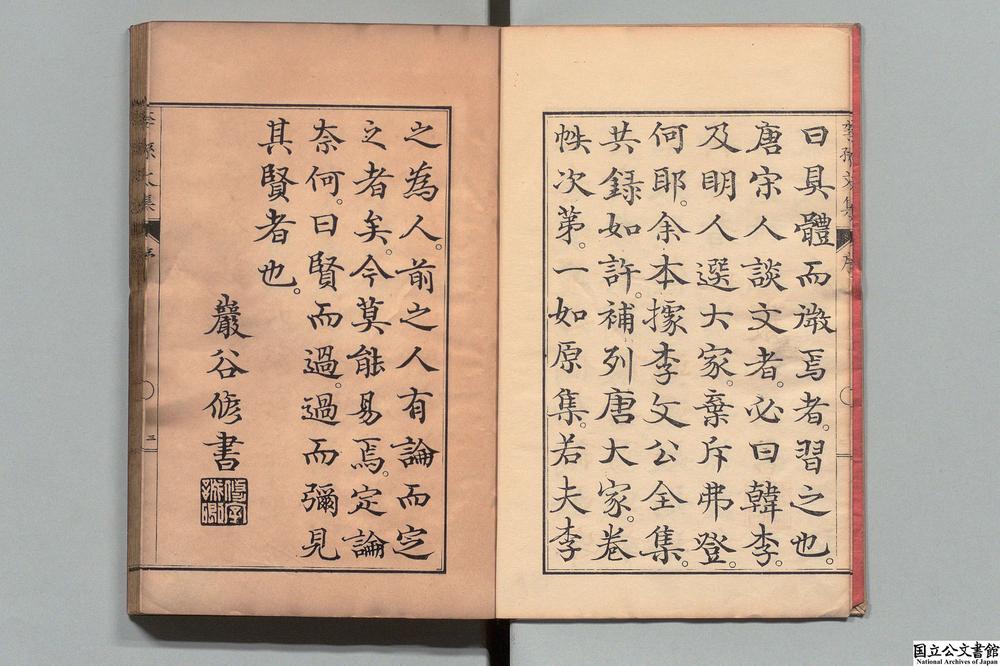 曰具體而微焉者。習之也。
唐宋人談文者。必曰韓李。
及明人選大家。棄斥弗登。
何耶。余本據李文公全集。
共錄如許。補列唐大家。卷
帙次第。一如原集。若夫李
之為人。前之人有論而定
之者矣。今莫能易焉。定論
奈何。曰賢而過。過而彌見
其賢者也。
巖谷修書
李孫文集
序
三
国立公文書館
National Archives of Japan